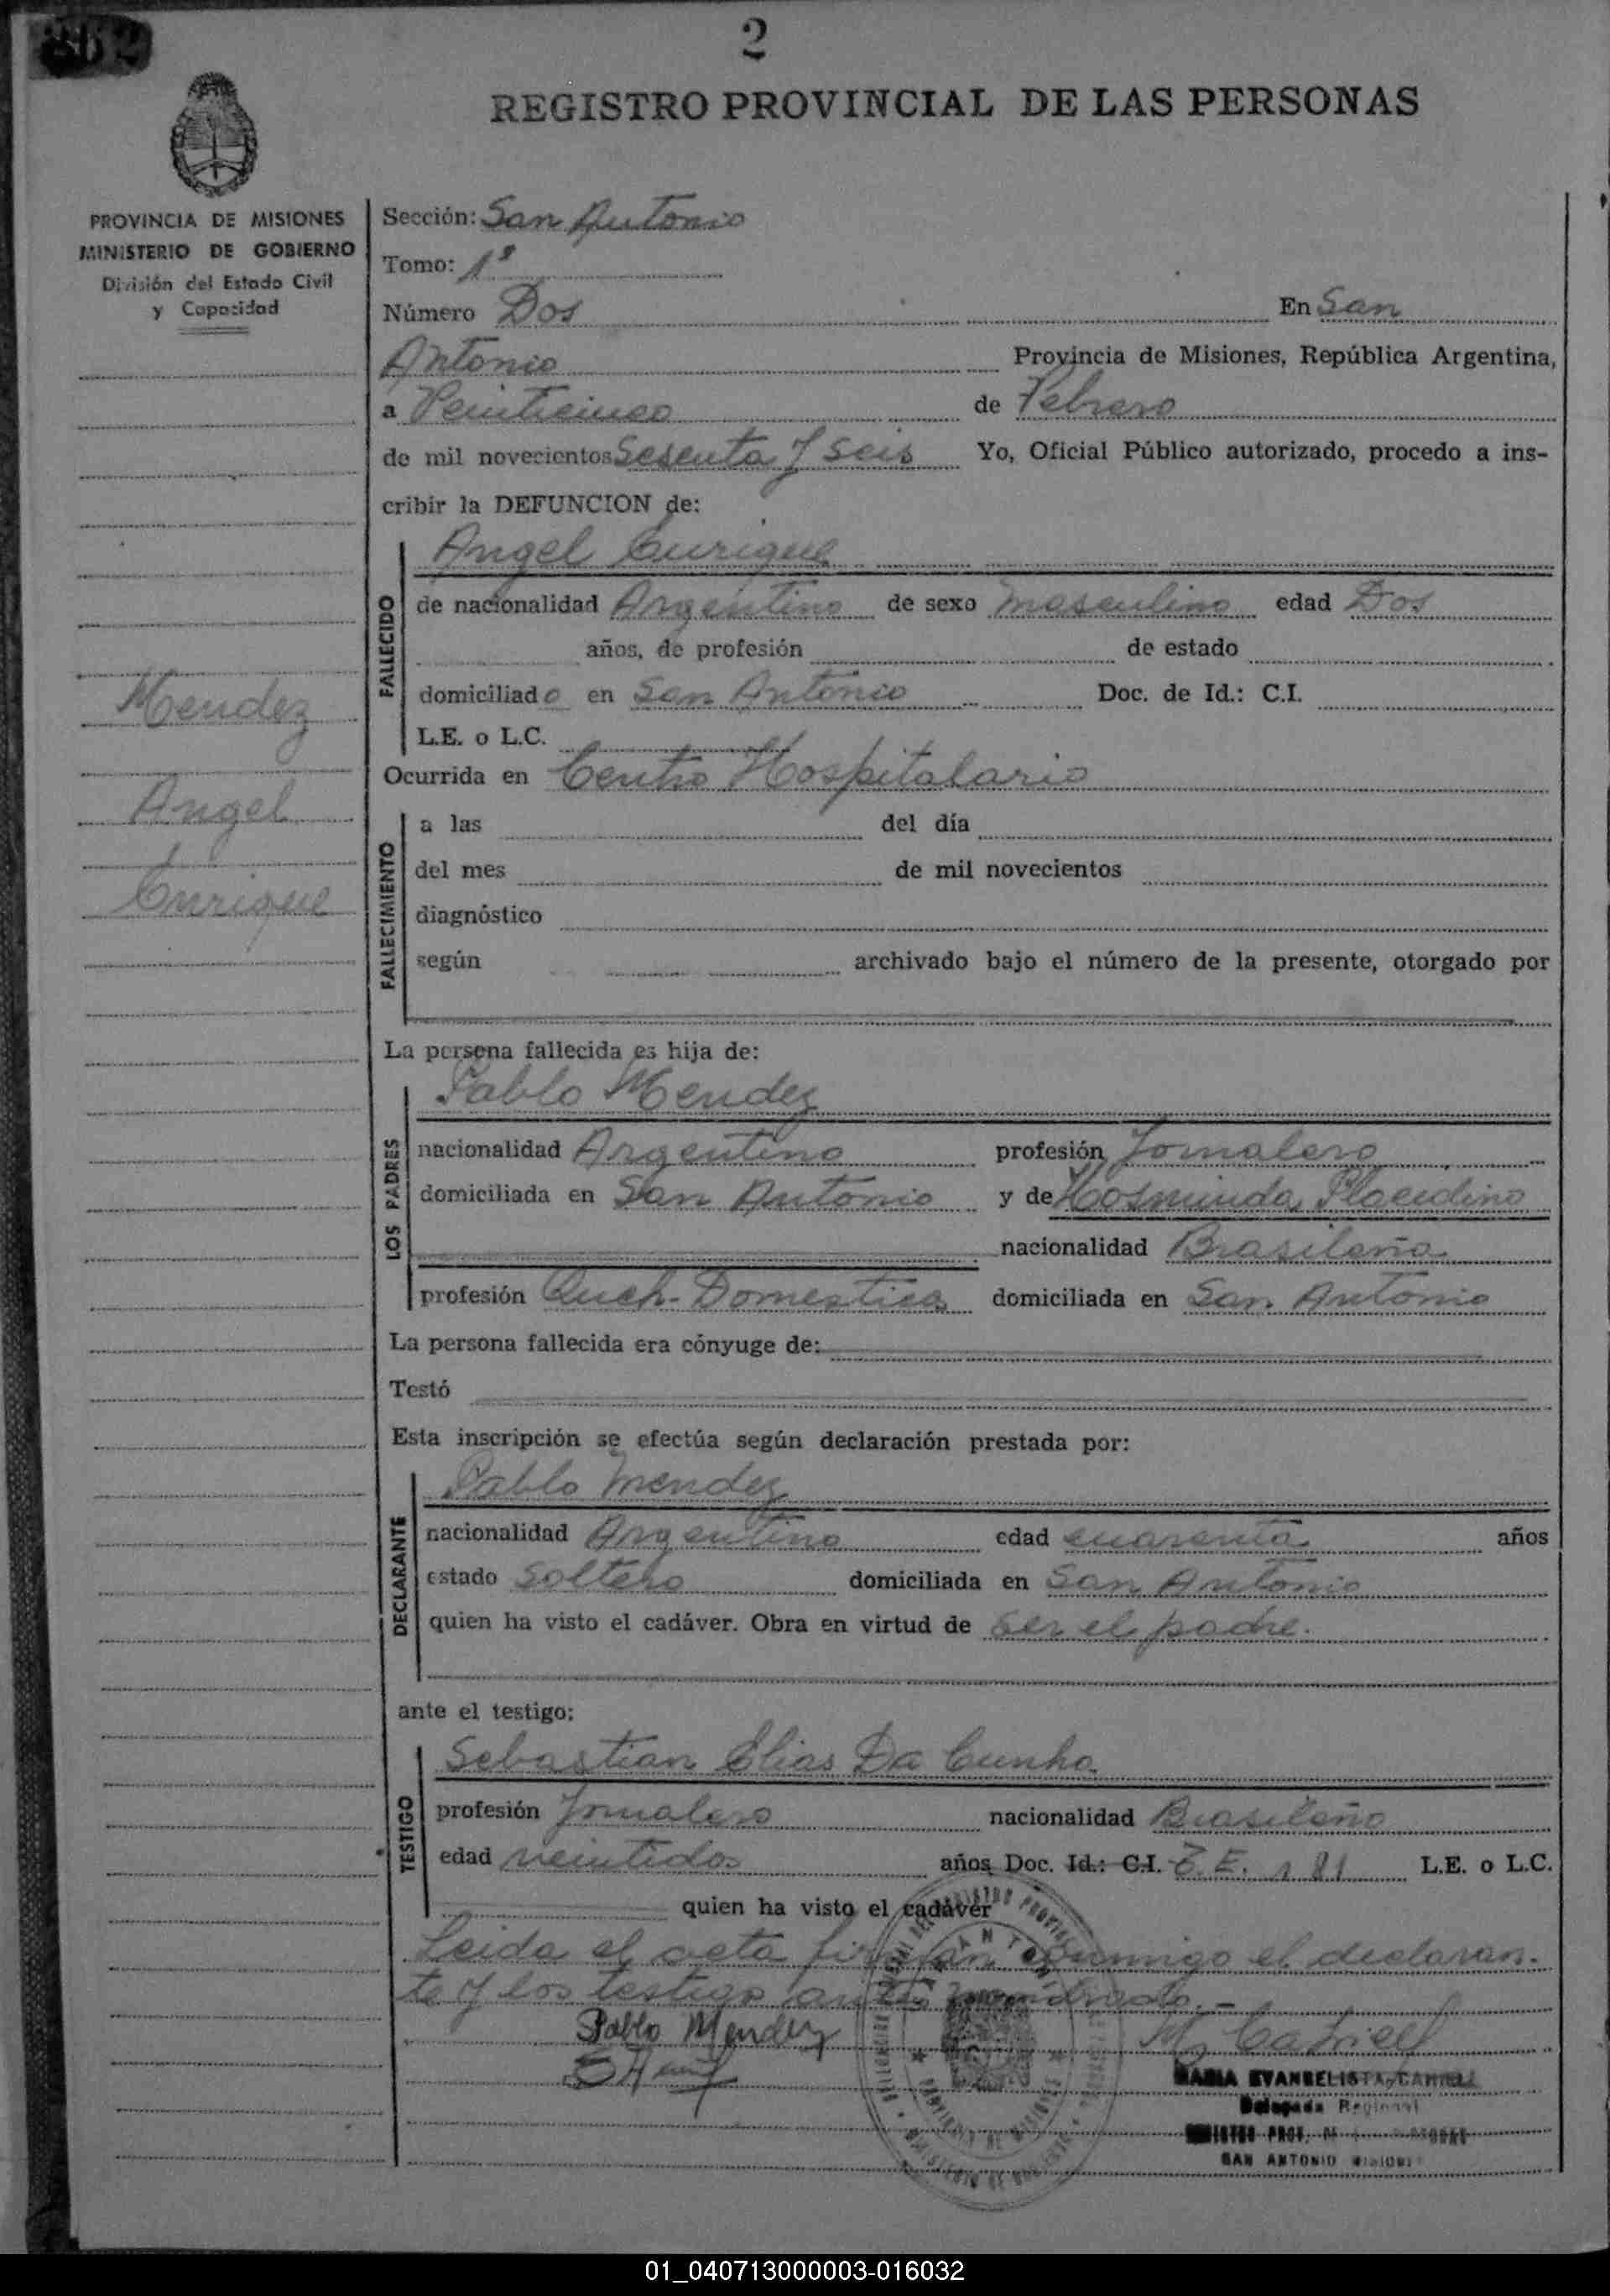 2
REGISTRO PROVINCIAL DE LAS PERSONAS
PROVINCIA DE MISIONES
MINISTERIO DE GOBIERNO
División del Estado Civil
y Capacidad
Mendez
Angel
Enrique
Sección: San Antonio
Tomo: 1º
Número Dos En San
Antonio Provincia de Misiones, República Argentina,
a Veinticinco de Febrero
de mil novecientos Sesenta y seis Yo, Oficial Público autorizado, procedo a ins-
cribir la DEFUNCION de:
Angel Enrique
FALLECIDO
de nacionalidad Argentino de sexo masculino edad Dos
años, de profesión de estado
domiciliado en San Antonio Doc. de Id.: C.I.
L.E. o L.C.
Ocurrida en Centro Hospitalario
FALLECIMIENTO
a las del día
del mes de mil novecientos
diagnóstico
según archivado bajo el número de la presente, otorgado por
La persona fallecida es hija de:
Pablo Mendez
LOS PADRES
nacionalidad Argentino profesión Jornalero
domiciliada en San Antonio y de Hosminda Placidino
nacionalidad Brasileña
profesión Queh-Domestica domiciliada en San Antonio
La persona fallecida era cónyuge de:
Testó
Esta inscripción se efectúa según declaración prestada por:
Pablo Mendez
DECLARANTE
nacionalidad Argentino edad cuarenta años
estado Soltero domiciliada en San Antonio
quien ha visto el cadáver. Obra en virtud de ser el padre.
ante el testigo:
Sebastian Elias Da Cunha
TESTIGO
profesión Jornalero nacionalidad Brasileño
edad veintidos años Doc. Id.: C.I. L.E. o L.C.
quien ha visto el cadáver
Leida el acta firman conmigo el declaran-
te y los testigo antes
Pablo Mendez
MARIA EVANGELISTA CABRIEL
Delegada Regional
SAN ANTONIO MISIONES
01_040713000003-016032